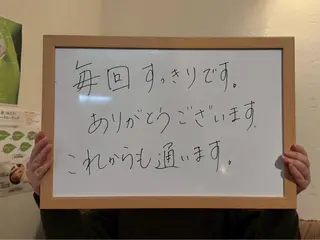 毎回すっきりです。
ありがとうございます.
これからも通います。